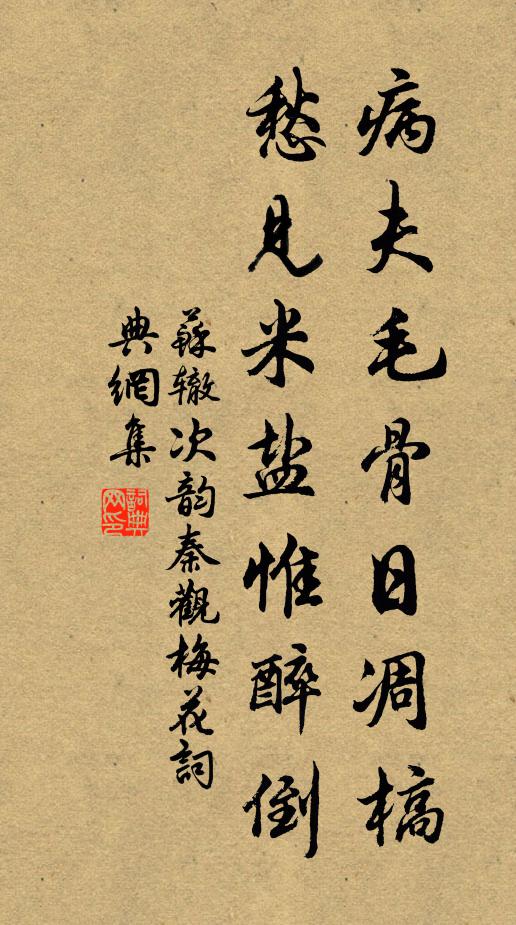 病夫毛骨日凋槁
愁见米盐惟醉倒
蘇辙次韵秦觀梅花詞
典網集
詞典网印